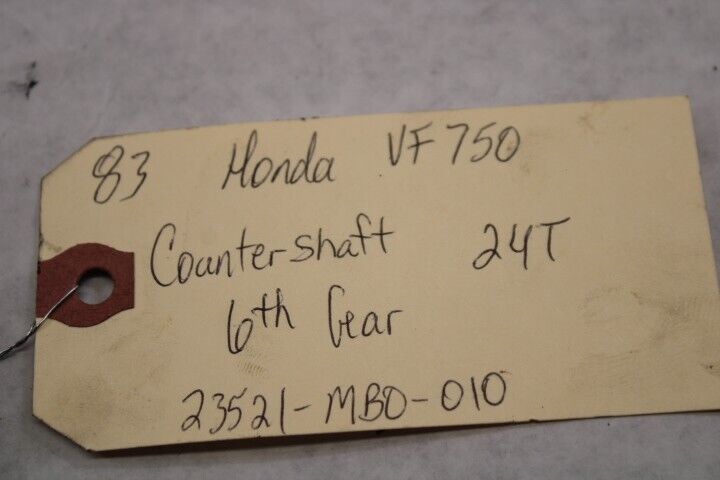 83 Honda VF750
Countershaft 24T
6th Gear
23521-MB0-010